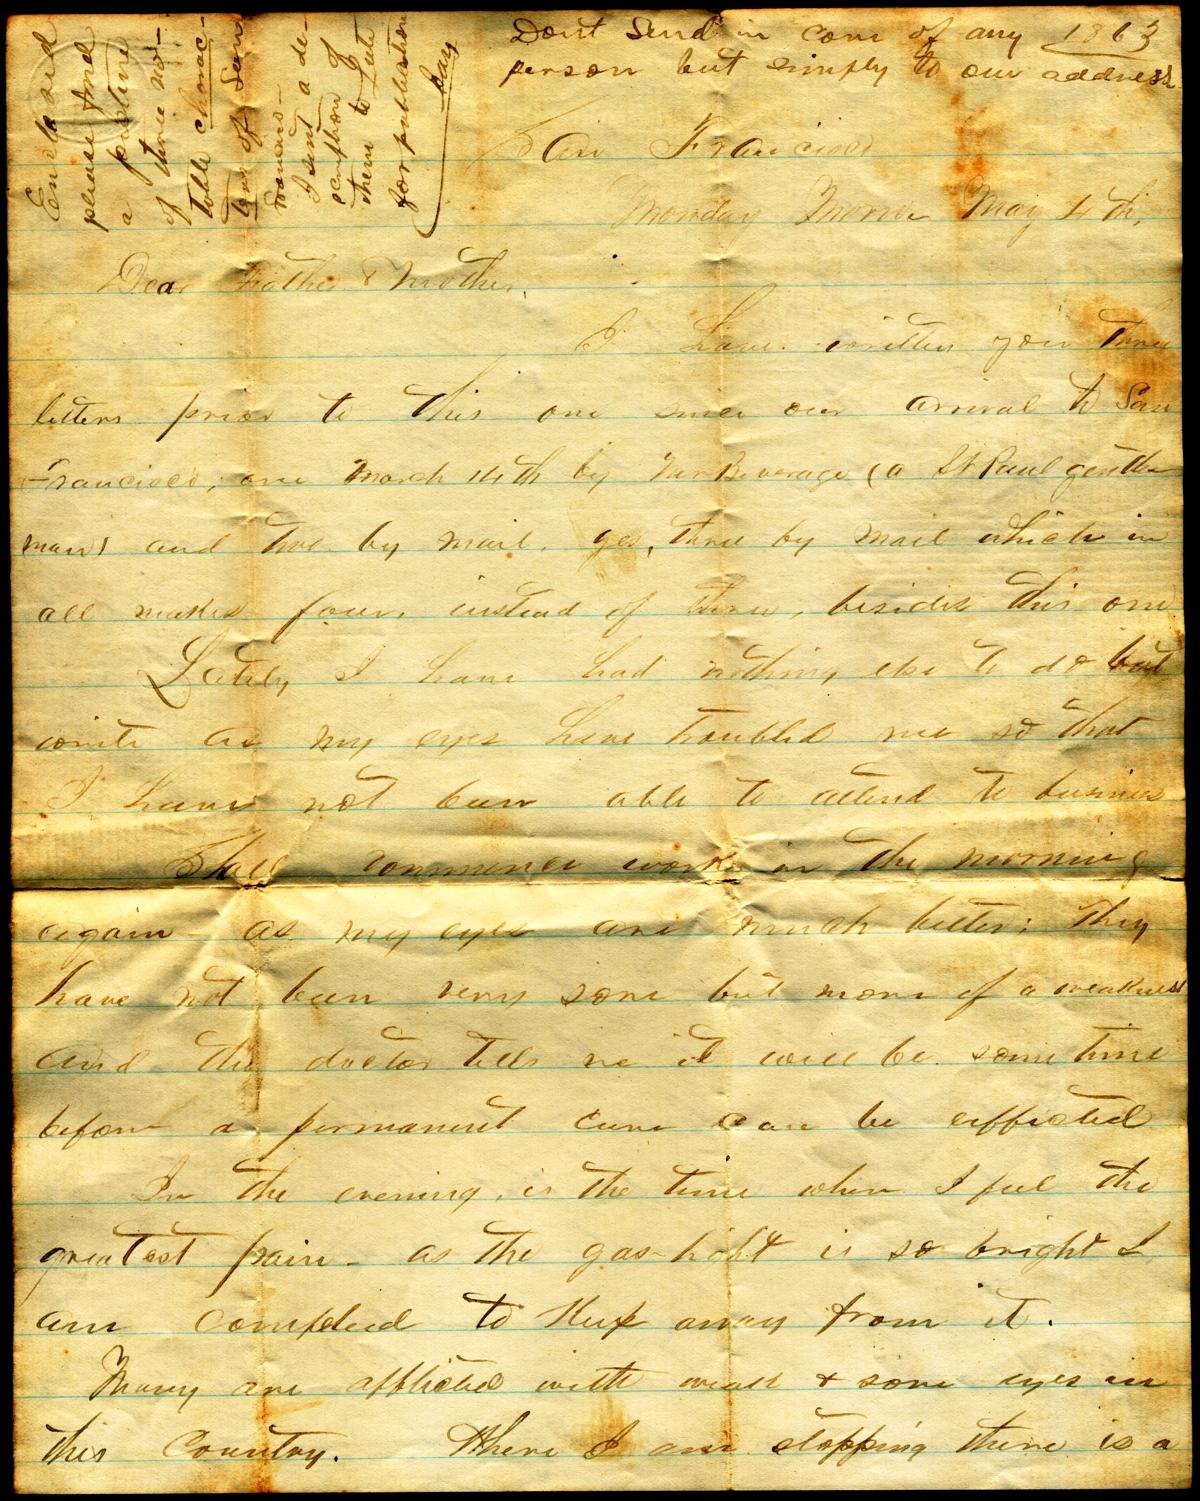 Dont Send in care of any 1863
person but simply to our address
Enclosed
please find
a picture
of three no-
table charac-
ters of San
I sent a de-
scription of
them to Pate
for publication
San Francisco
Monday Morn May 4th,
Dear Father & Mother,
I have written you three
letters prior to this one since our arrival to San
Francisco; one March 14th by Mr Beverage (a St Paul gentle
man) and two by mail. yes, three by mail which in
all makes four, instead of three, besides this one
Lately I have had nothing else to do but
write as my eyes have troubled me so that
I have not been able to attend to business
Shall commence work in the morning
again - as my eyes are much better; they
have not been very sore but more of a weakness
and the doctor tells me it will be some time
before a permanent cure can be effected
In the evening, is the time when I feel the
greatest pain - as the gas-light is so bright I
am compleed to keep away from it.
Many are afflicted with weak & sore eyes in
this Country. Where I am stopping there is a